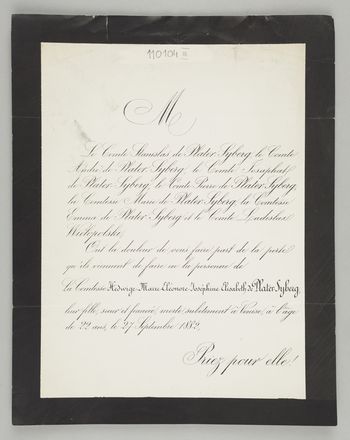 110104 III
M
Le Comte Stanislas de Plater Syberg, le Comte
André de Plater Syberg, le Comte Josaphat
de Plater Syberg, le Comte Pierre de Plater Syberg,
la Comtesse Marie de Plater Syberg, la Comtesse
Emma de Plater Syberg et le Comte Ladislas
Wielopolski,
Ont la douleur de vous faire part de la perte
qu'ils viennent de faire en la personne de
La Comtesse Hedwige-Marie-Eléonore-Joséphine-Elisabeth de Plater Syberg
leur fille, sœur et fiancée, morte subitement à Venise, à l'âge
de 22 ans, le 27 Septembre 1882.
Priez pour elle!